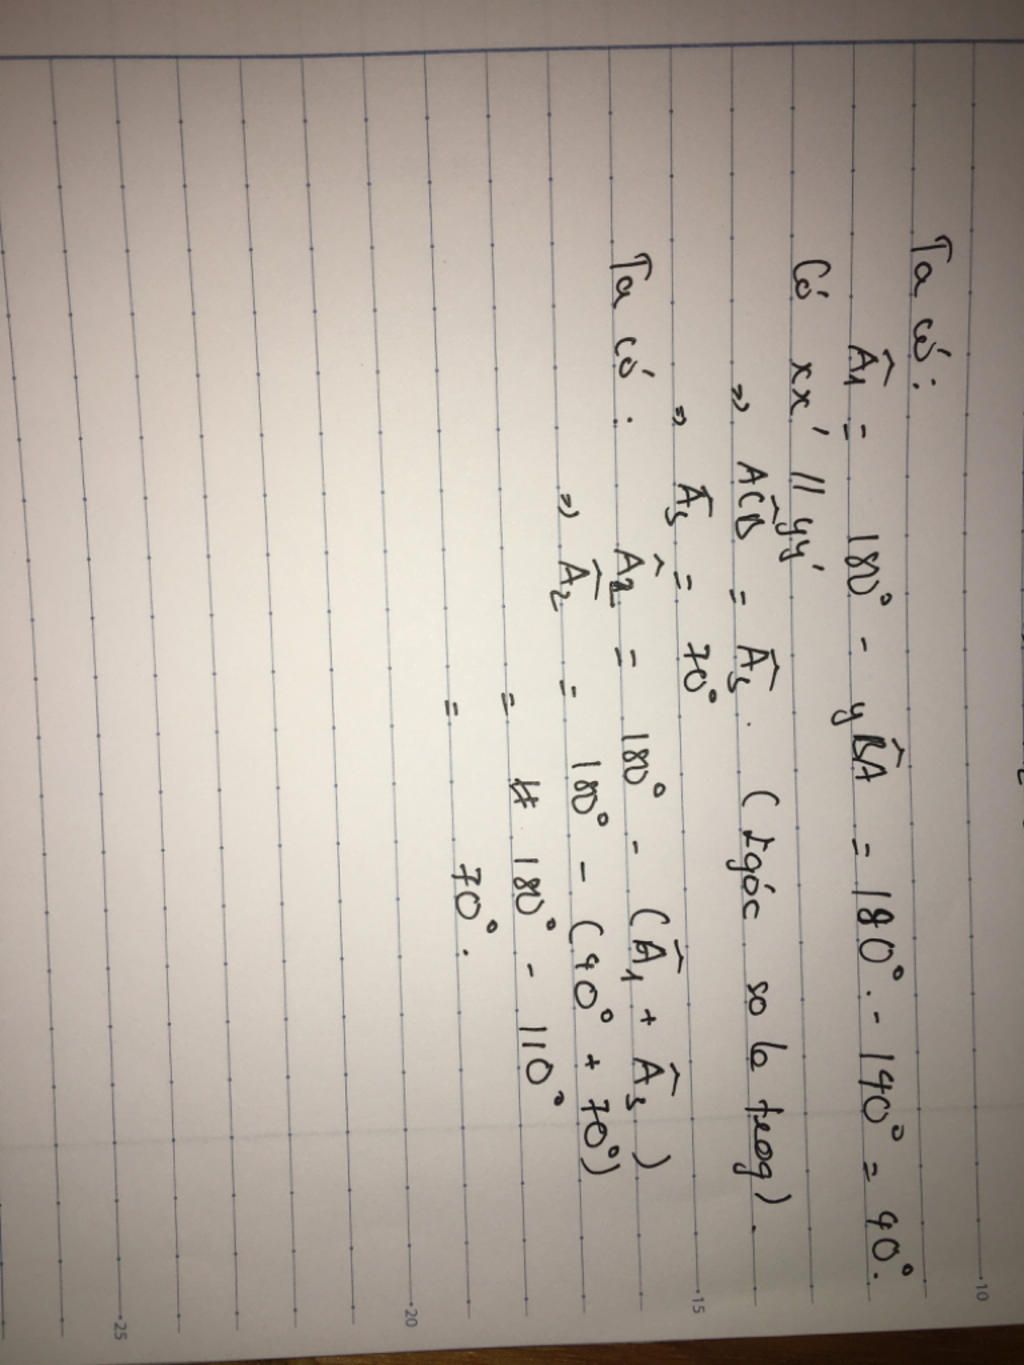 Ta có:
Â₁ = 180° - yB̂A = 180° - 140° = 40°.
Có xx' // yy'
=> AĈB = Â₃. (2 góc so le trog).
=> Â₃ = 70°
Ta có: Â₂ = 180° - (Â₁ + Â₃)
=> Â₂ = 180° - (40° + 70°)
= 180° - 110°
= 70°.
10
15
20
25